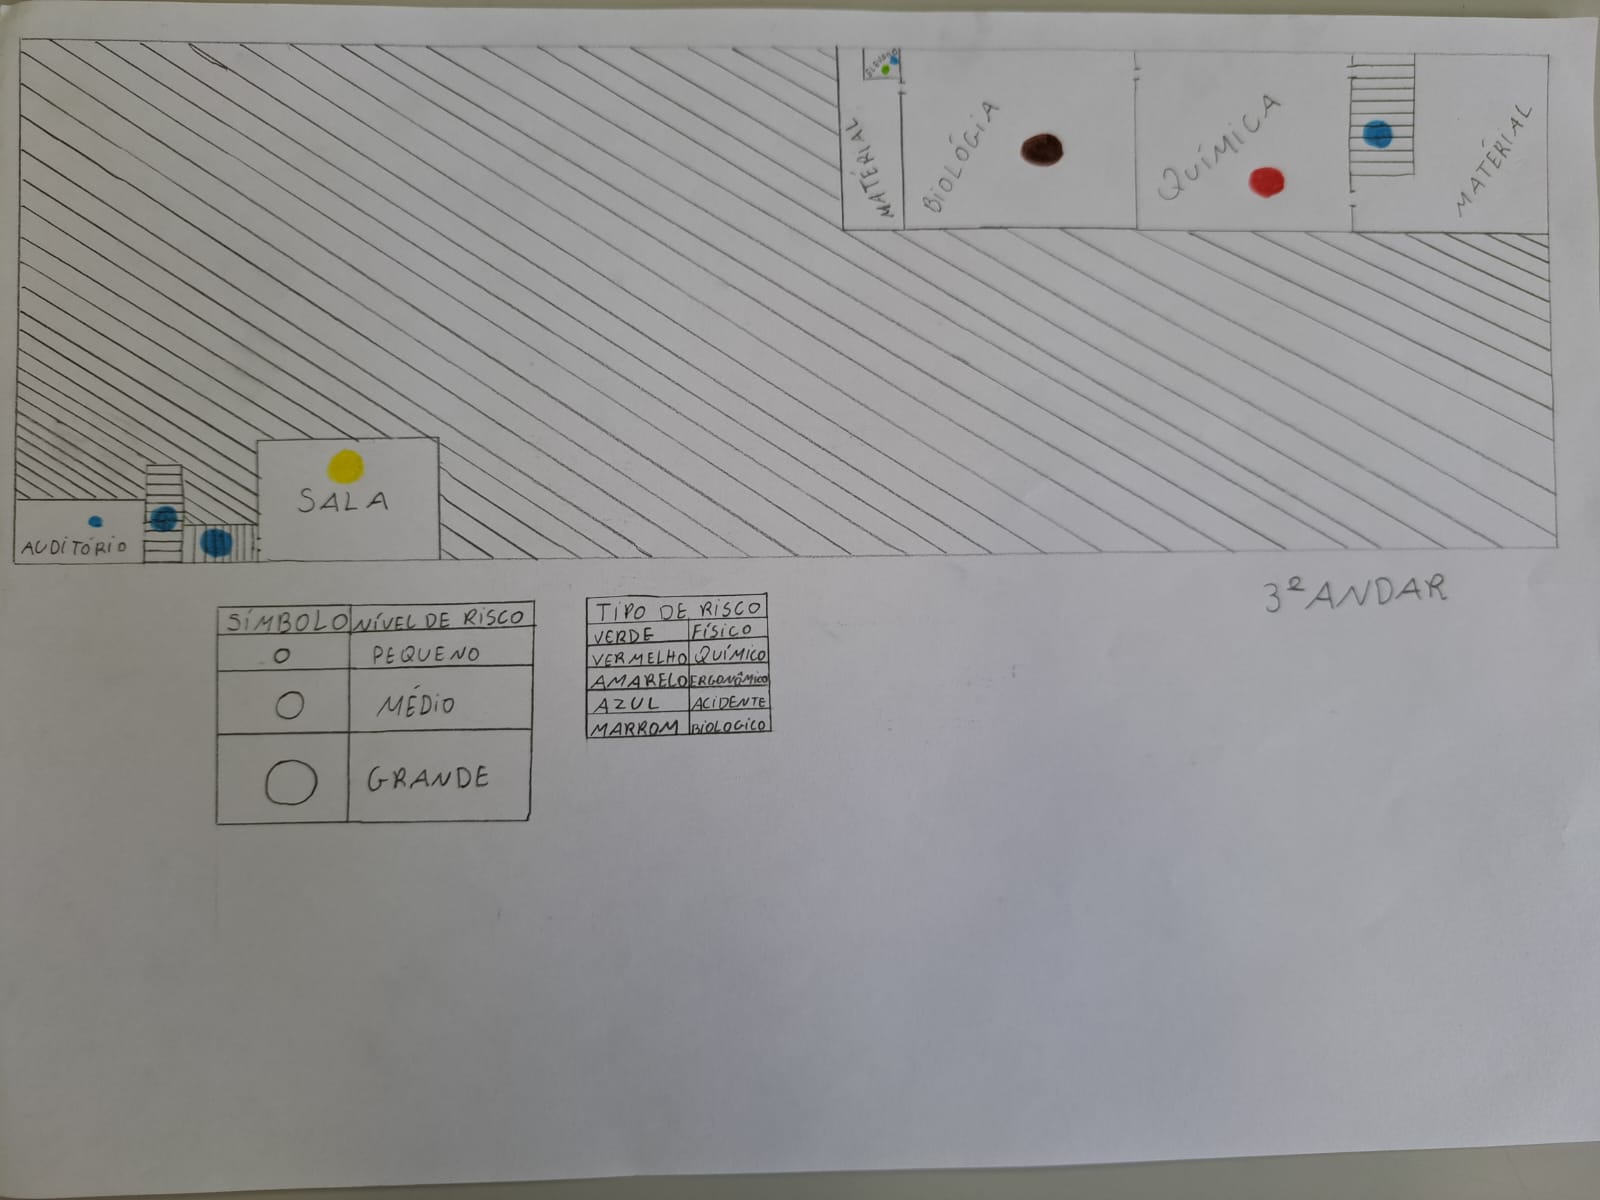 MATÉRIAL
BIOLÓGIA
QUÍMICA
MATÉRIAL
SALA
AUDITÓRIO
3º ANDAR
SÍMBOLO NÍVEL DE RISCO
PEQUENO
MÉDIO
GRANDE
TIPO DE RISCO
VERDE FÍSICO
VERMELHO QUÍMICO
AMARELO ERGONÔMICO
AZUL ACIDENTE
MARROM BIOLOGICO